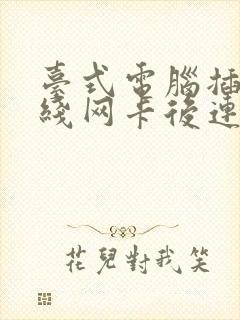 臺式電腦插
綫网卡後連
花兒對我笑